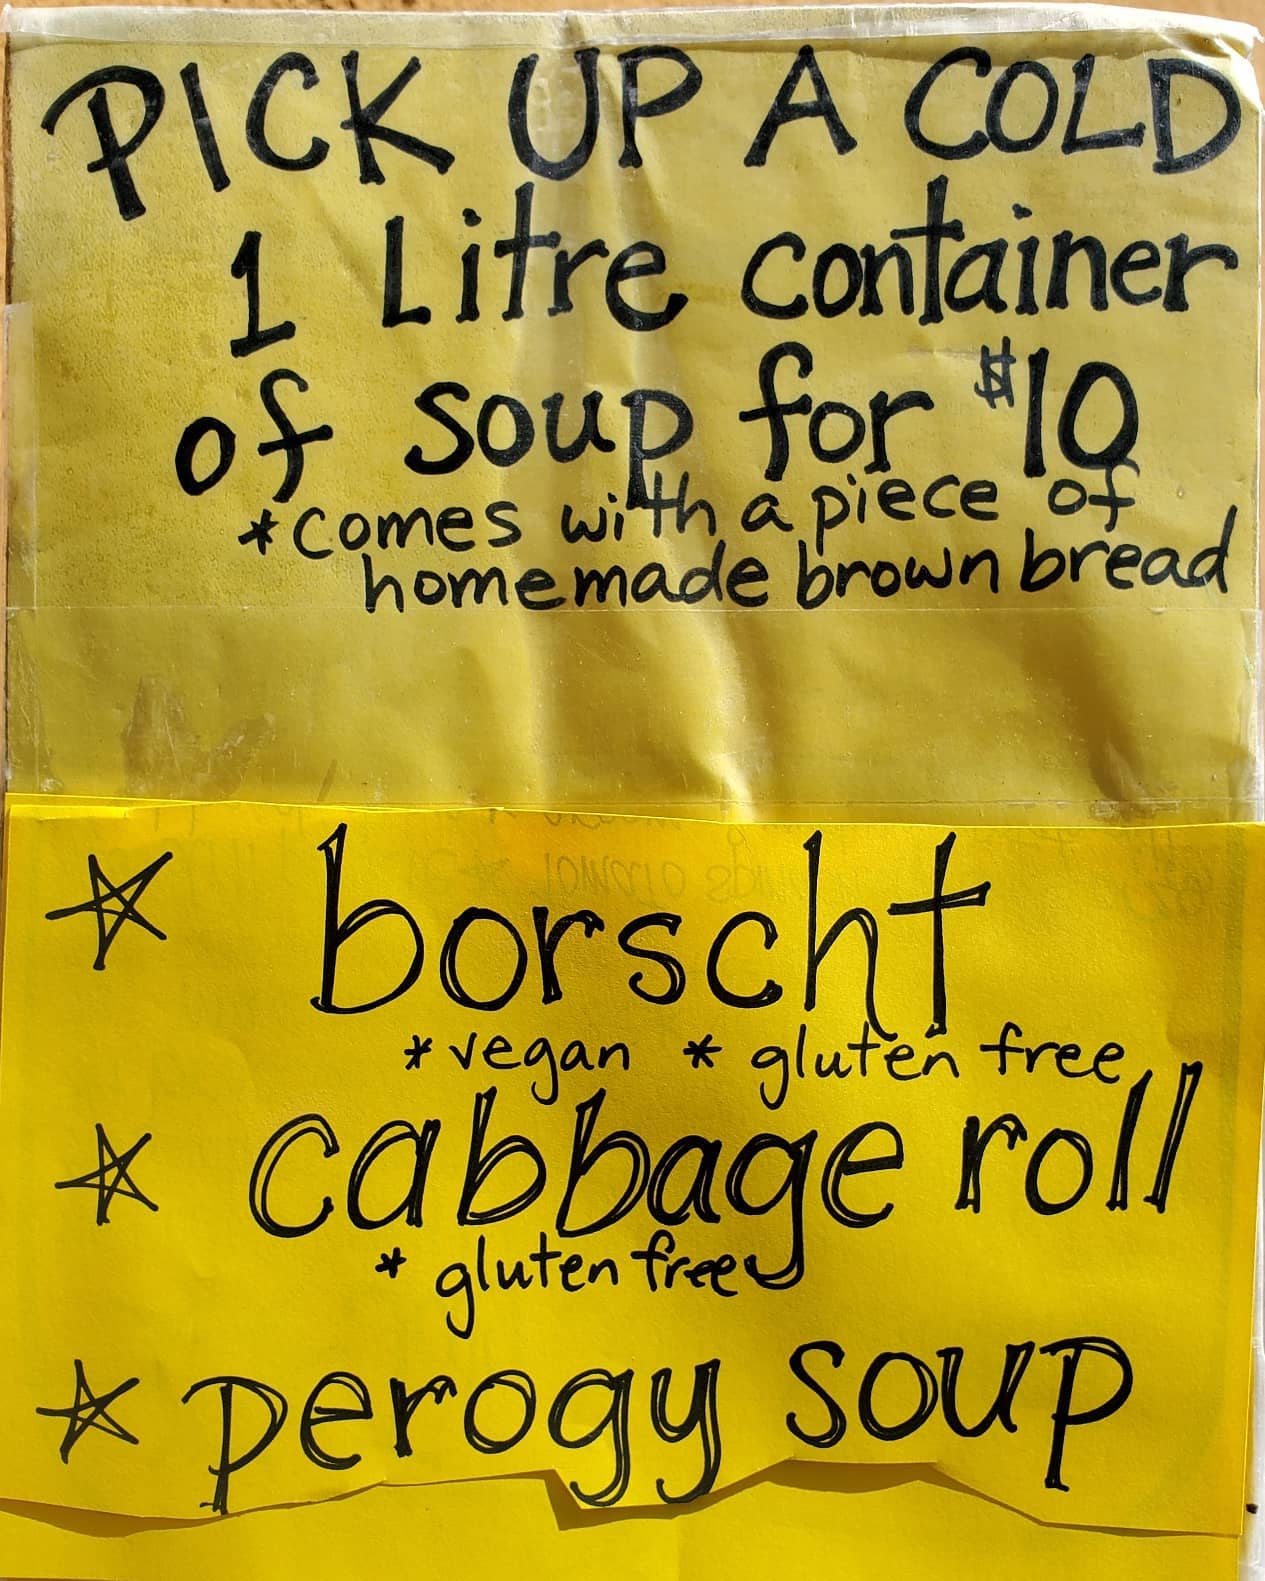 PICK UP A COLD
1 Litre container
of soup for $10
*comes with a piece of
homemade brown bread
☆ borscht
*vegan * gluten free
☆ cabbage roll
* gluten free
☆ perogy soup